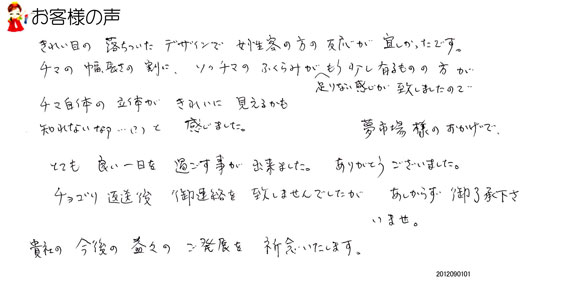 お客様の声
きれい目の 落ちついた デザインで 女性客の方の 反応が 宜しかったです。
チマの 幅長さの 割に、ソッチマの ふくらみが もう少し 有るものの 方が
足りない感じが 致しましたので
チマ自体の 立体が きれいに 見えるかも
知れないな…と 感じました。
夢市場様の おかげで、
とても 良い一日を 過ごす事が 出来ました。 ありがとう ございました。
チョゴリ 返送後 御連絡を 致しませんでしたが あしからず 御了承下さ
いませ。
貴社の 今後の 益々の ご発展を 祈念いたします。
2012090101